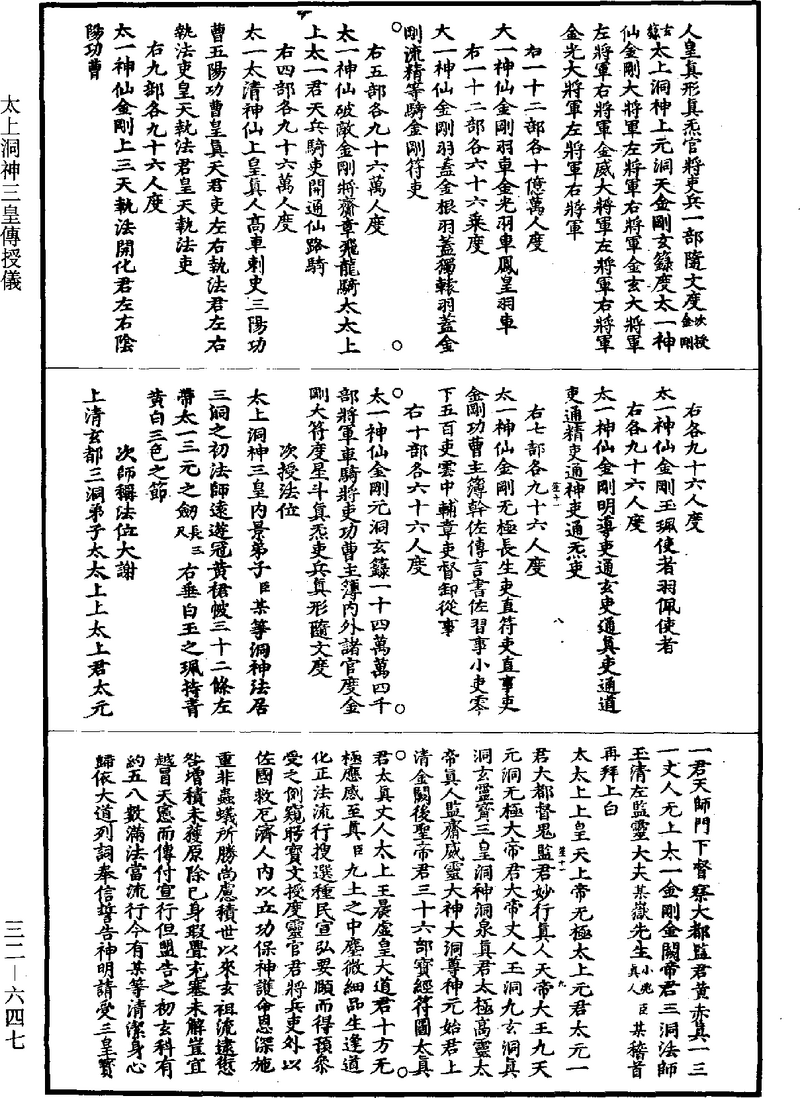 人皇眞形眞炁官將吏兵一部隨文度次授金剛
玄籙太上洞神上元洞天金剛玄籙度太一神
仙金剛大將軍左將軍右將軍金玄大將軍
左將軍右將軍金威大將軍左將軍右將軍
金光大將軍左將軍右將軍
右一十二部各十億萬人度
大一神仙金剛羽車金光羽車鳳皇羽車
右一十二部各六十六乘度
大一神仙金剛羽蓋金根羽蓋獨轅羽蓋金
剛流精等騎金剛符吏
右五部各九十六萬人度
太一神仙破敵金剛將齋章飛龍騎太太上
上太一君天兵騎吏開通仙路騎
右四部各九十六萬人度
太一太清神仙上皇眞人高車刺史三陽功
曹五陽功曹皇眞天君吏左右執法君左右
執法吏皇天執法君皇天執法吏
右九部各九十六人度
太一神仙金剛上三天執法開化君左右陰
陽功曹
右各九十六人度
太一神仙金剛玉珮使者羽佩使者
右各九十六人度
太一神仙金剛明導吏通玄吏通眞吏通道
吏通精吏通神吏通炁吏
右七部各九十六人度
太一神仙金剛无極長生吏直符吏直事吏
金剛功曹主簿幹佐傳言書佐習事小吏零
下五百吏雲中輔章吏督卸從事
右十部各六十六人度
太一神仙金剛元洞玄籙一十四萬萬四千
部將軍車騎將吏功曹主簿內外諸官度金
剛大符度星斗眞炁吏兵眞形隨文度
次授法位
太上洞神三皇內景弟子臣某等洞神法居
三洞之初法師遠遊冠黃裙帔三十二條左
帶太一三元之劒長三尺右垂白玉之珮持青
黃白三色之節
次師稱法位大謝
上清玄都三洞弟子太太上上太上君太元
一君天師門下督察大都監君黃赤眞一三
一丈人无上太一金剛金闕帝君三洞法師
玉清左監靈大夫某嶽先生小兆眞人臣某稽首
再拜上白
太太上上皇天上帝无極太上元君太元一
君大都督鬼監君妙行眞人天帝大王九天
元洞无極大帝君大帝丈人王洞九玄洞眞
洞玄靈寶三皇洞神洞泉眞君太極高靈太
帝眞人監齋威靈大神大洞尊神元始君上
清金闕後聖帝君三十六部寶經符圖太眞
君太眞丈人太上玉晨虛皇大道君十方无
極應感至眞臣九土之中塵微細品生逢道
化正法流行搜選種民宣弘要願而得預參
受之例窺盻寶文授度靈官君將兵吏外以
佐國救厄濟人內以立功保神護命恩深施
重非蟲蟻所勝尚慮積世以來玄祖流逮愆
咎壇積未蒙原除已身瑕釁充塞未解豈宜
越冒天憲而傳付宣行但盟告之初玄科有
約五八數滿法當流行今有某等清潔身心
歸依大道列詞奉信誓告神明請受三皇寶
太上洞神三皇傳授儀
三二—六四七